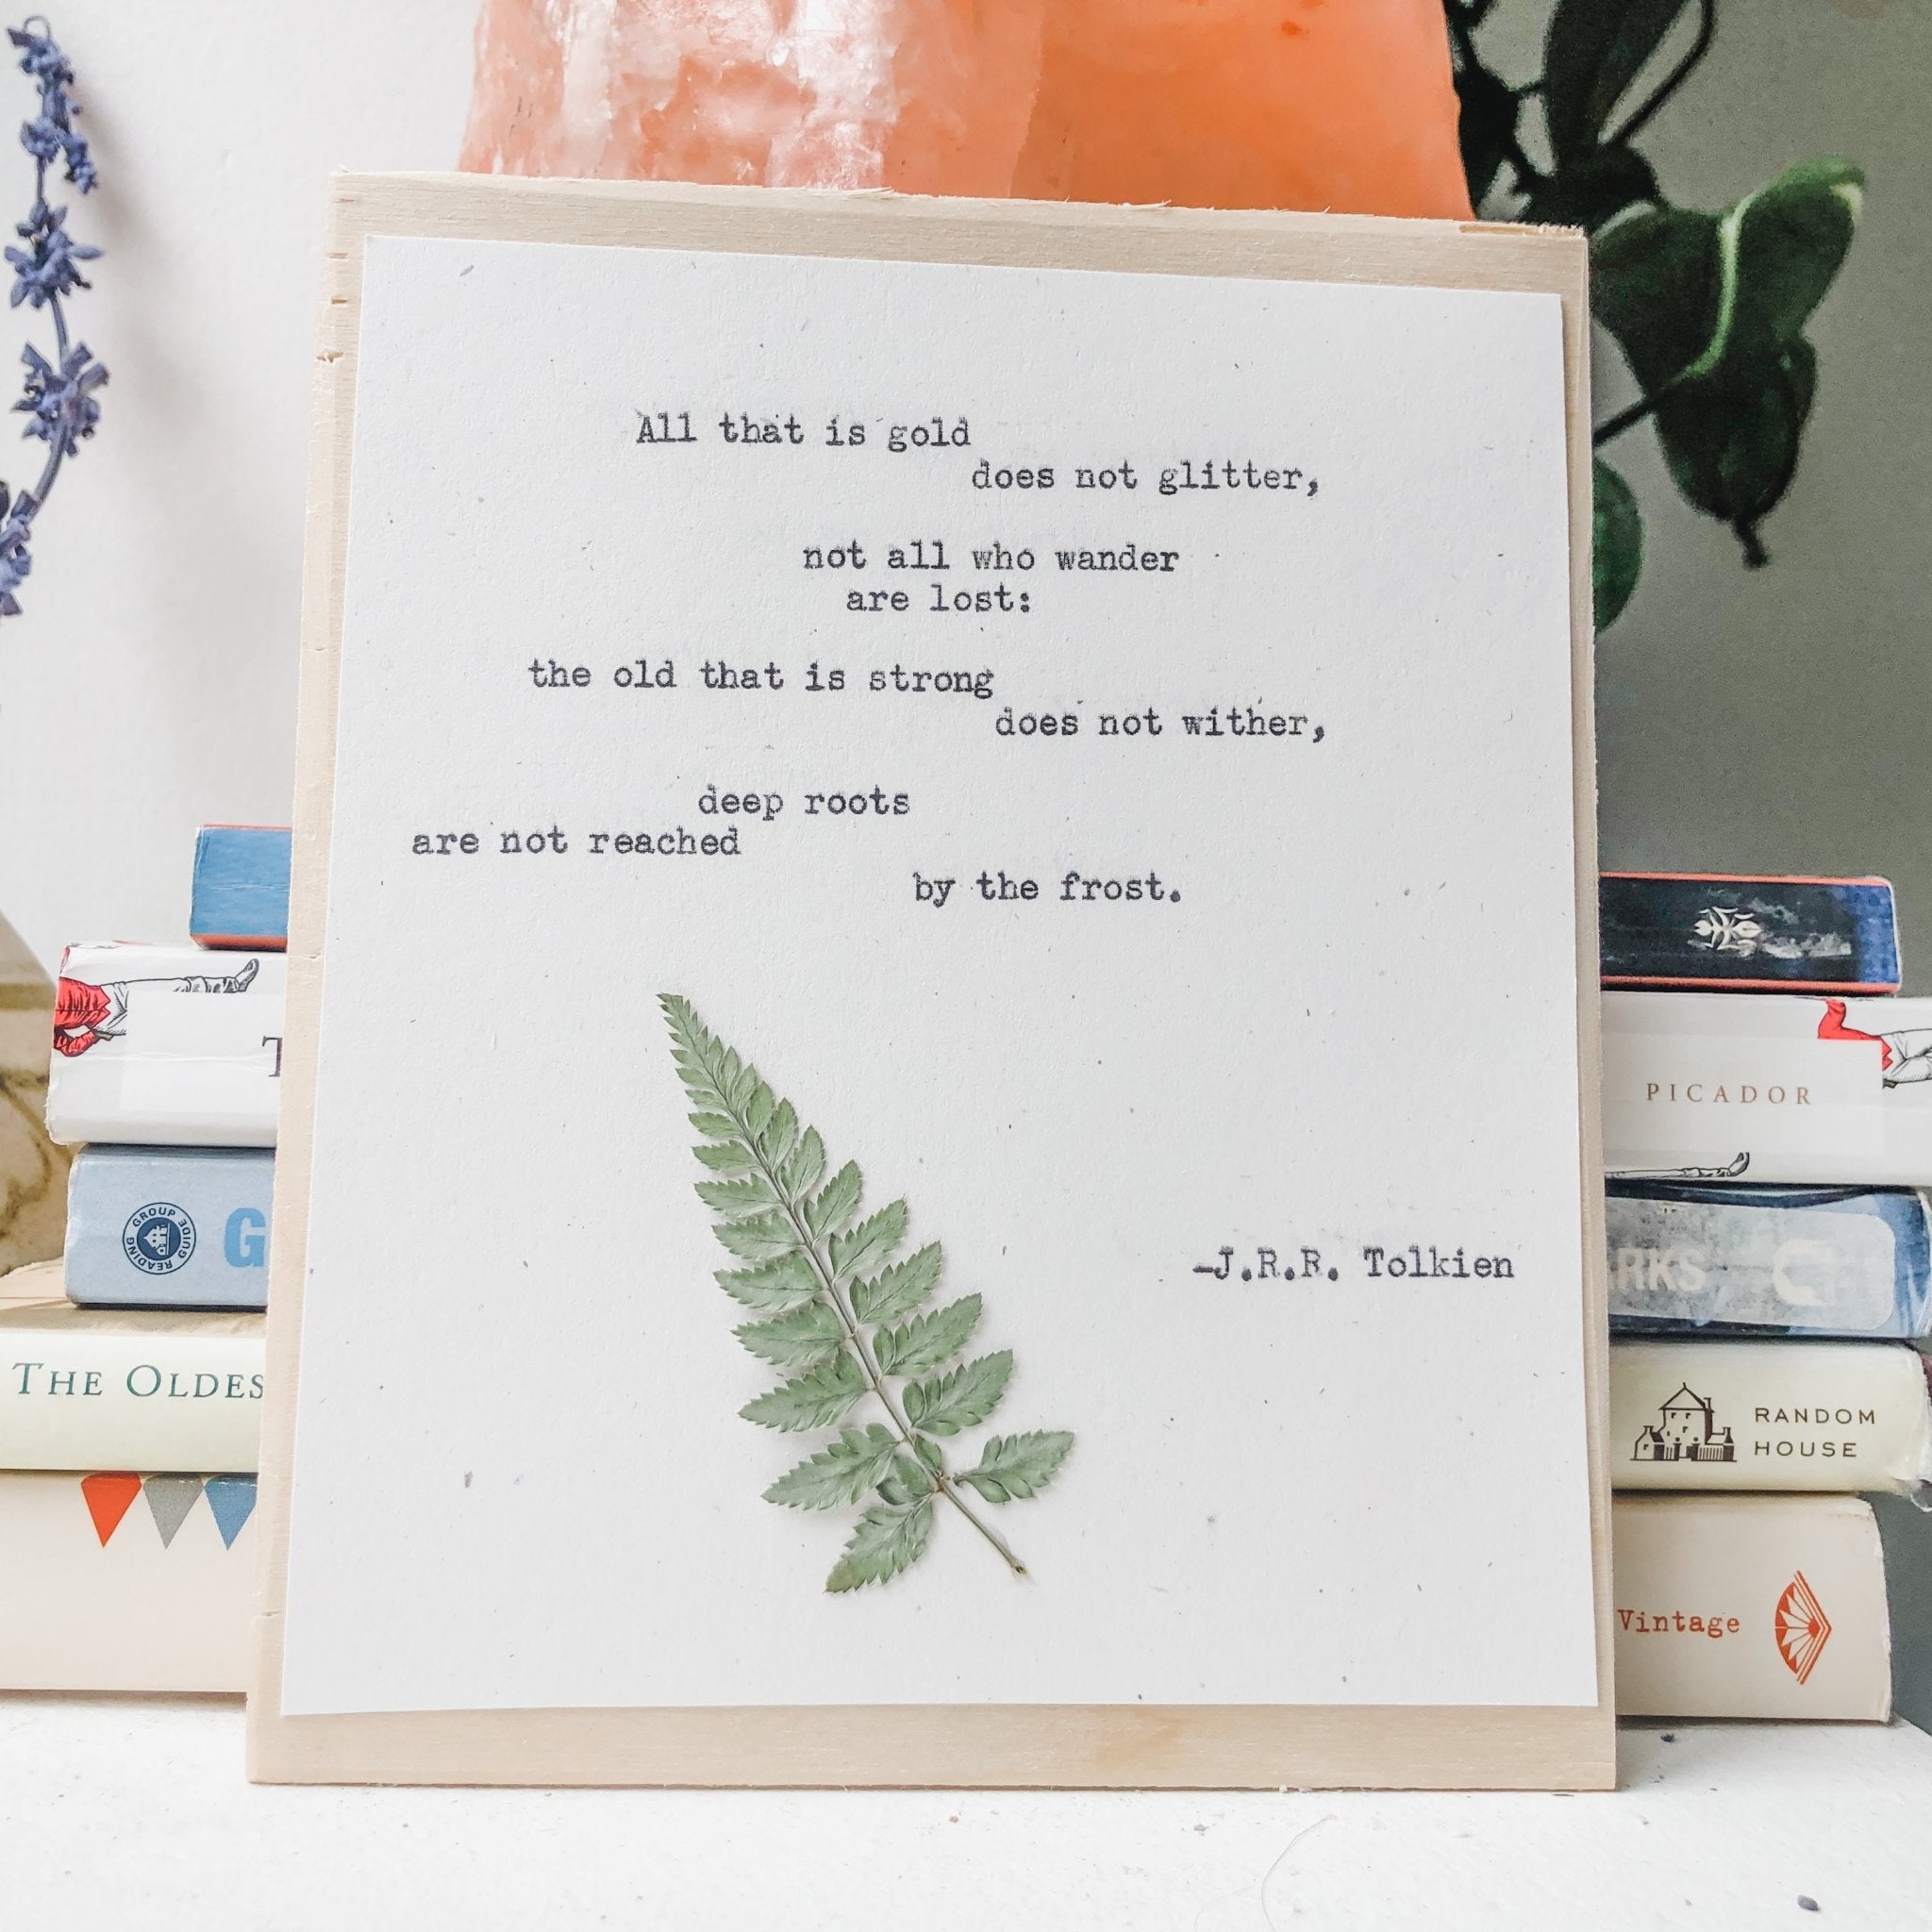 All that is gold
does not glitter,
not all who wander
are lost:
the old that is strong
does not wither,
deep roots
are not reached
by the frost.
-J.R.R. Tolkien
T
READING GROUP GUIDE
G
THE OLDES
PICADOR
RKS
RANDOM
HOUSE
Vintage